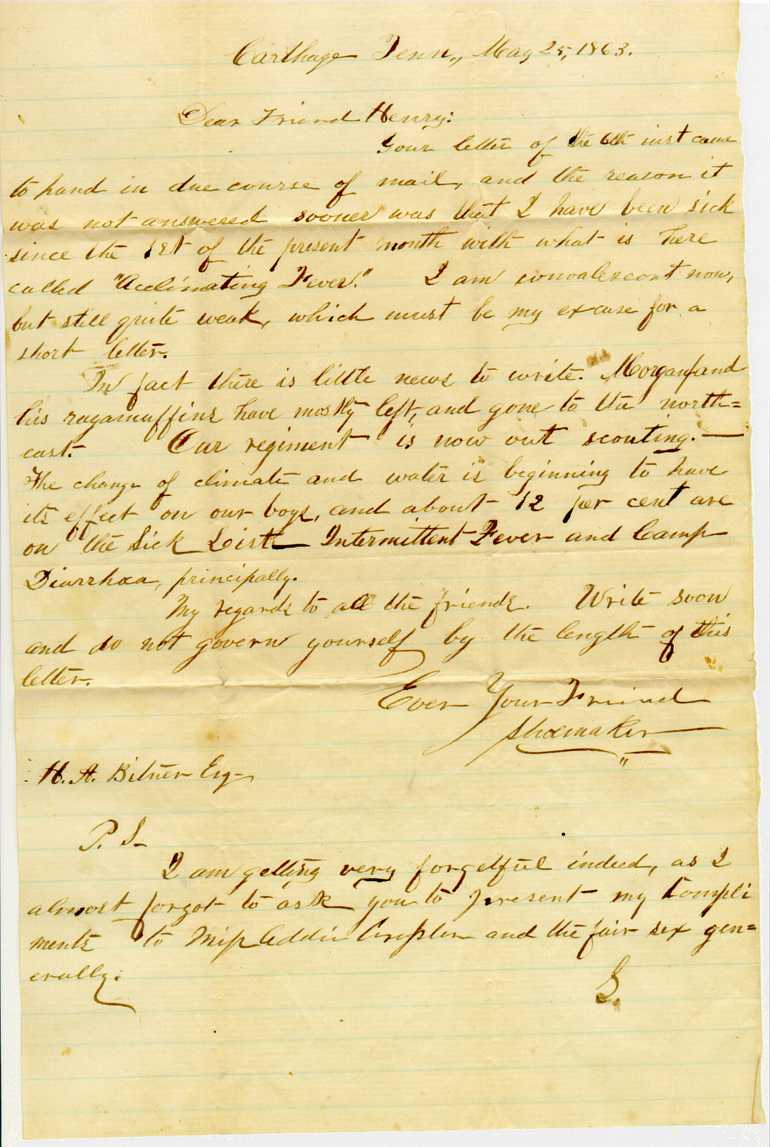 Carthage Tenn., May 25, 1863.
Dear Friend Henry:
Your letter of the 6th inst came
to hand in due course of mail, and the reason it
was not answered sooner was that I have been sick
since the 1st of the present month with what is here
called "Acclimating Fever." I am convalescent now,
but still quite weak, which must be my excuse for a
short letter.
In fact there is little news to write. Morgan and
his ragamuffins have mostly left, and gone to the north=
east. Our regiment is now out scouting.—
The change of climate and water is beginning to have
its effect on our boys, and about 12 per cent are
on the Sick List— Intermittent Fever and Camp
Diarrhœa, principally.
My regards to all the friends. Write soon
and do not govern yourself by the length of this
letter.
Ever Your Friend
Shoemaker
H. A. Bitner Esq—
P. S—
I am getting very forgetful indeed, as I
almost forgot to ask you to present my Compli
ments to Miss Addie and the fair sex gen=
erally.
S.